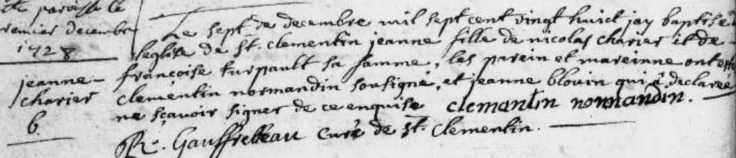 paroisse le
premier decembre
1728
jeanne
charier
b.
Le sept de decembre mil sept cent vingt huict jay baptisé
leglise de st. clementin jeanne fille de nicolas charier et de
francoise turpault sa famme, les parein et mareinne ont esté
clementin normandin sousigné, et jeanne blouin qui a declaré
ne sçavoir signer de ce enquise clemantin normandin.
Gauffreteau curé de st. Clementin.